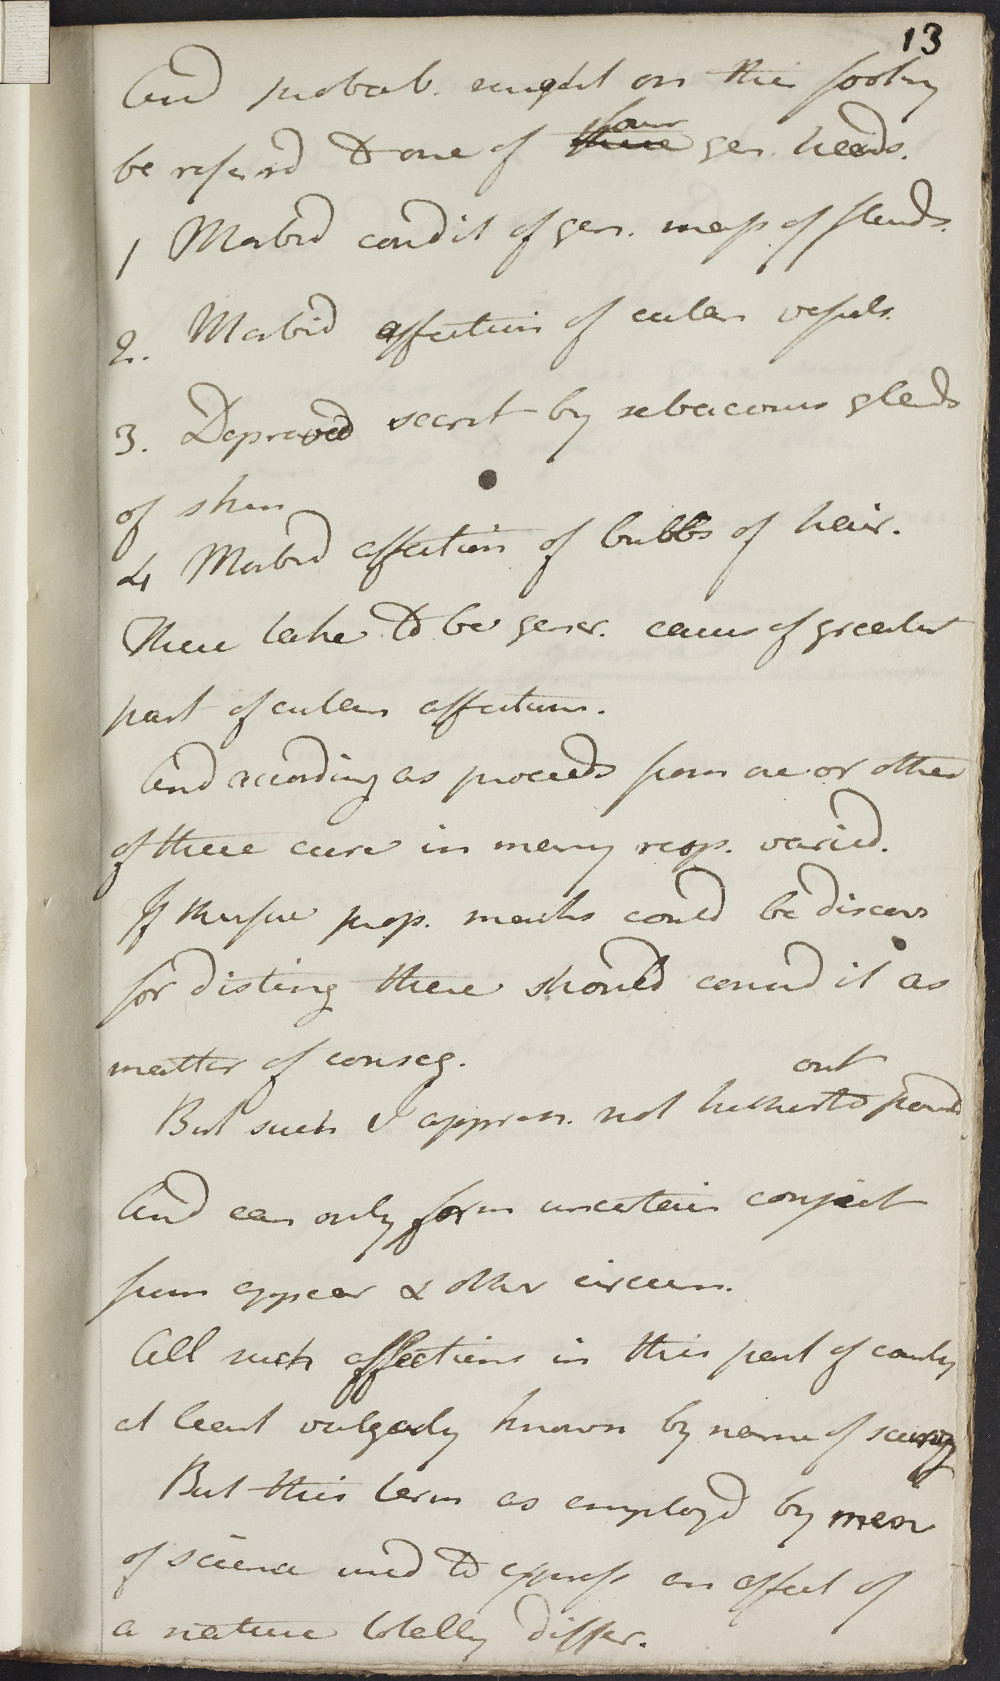 13
And probab. might on this footing
be referrd to one of <del>three</del> four gen. heads.
1 Morbid condit of gen. mass of fluids.
2. Morbid affection of cutan vessels.
3. Depraved secret by sebaceous glands
of skin
4 Morbid affection of bulbs of hair.
These take to be gener. causes of greater
part of cutan affections.
And according as proceeds from one or other
of these cure in many resp. varied.
If therefore prop. marks could be discovd
for disting these should consid it as
matter of conseq.
out
But such I appren. not hitherto found
And can only form uncertain conject
from appear & other circum.
All such affections in this part of country
at least vulgarly known by name of scurvy
But this term as employd by men
of science used to express an affect of
a nature totally differ.